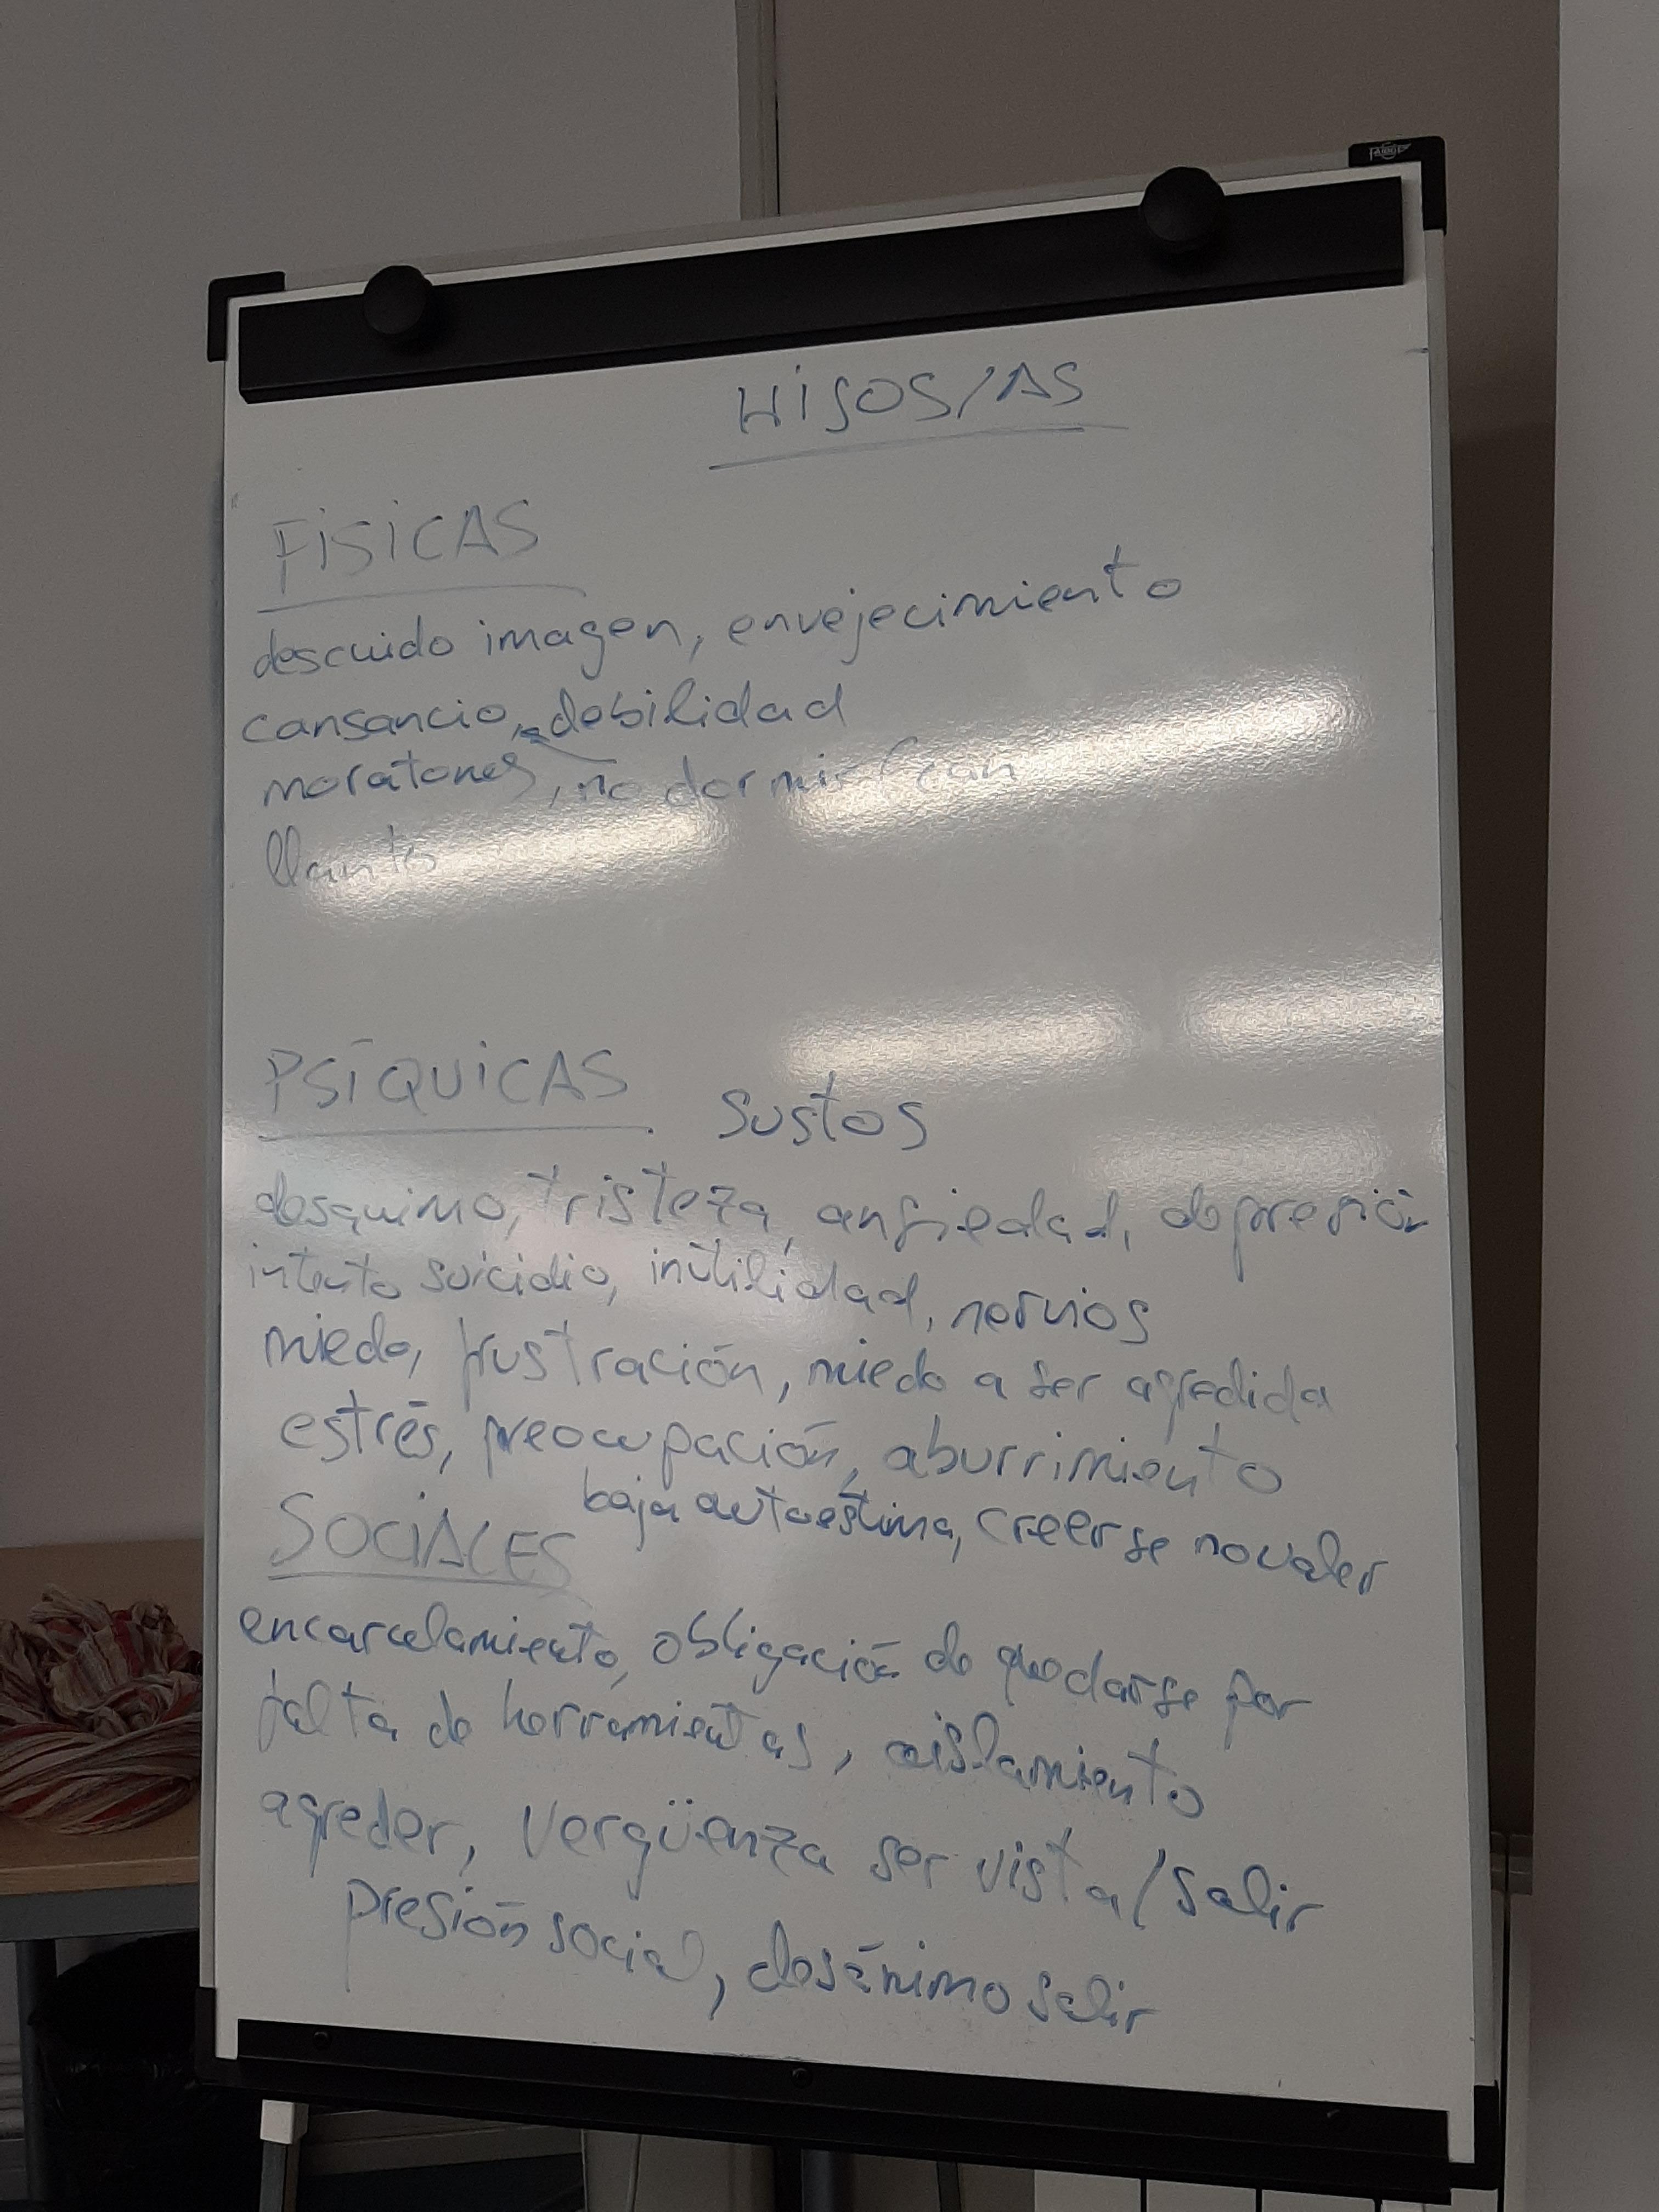 HIJOS/AS
FÍSICAS
descuido imagen, envejecimiento
cansancio, debilidad
moratones, no dormir
llantos
PSÍQUICAS. sustos
desquimo, tristeza, ansiedad, depresión
intento suicidio, inutilidad, nervios
miedo, frustración, miedo a ser agredida
estrés, preocupación, aburrimiento
baja autoestima, creerse no valer
SOCIALES
encarcelamiento, obligación de quedarse por
falta de herramientas, aislamiento
agreder, vergüenza ser vista/salir
presión social, desánimo salir